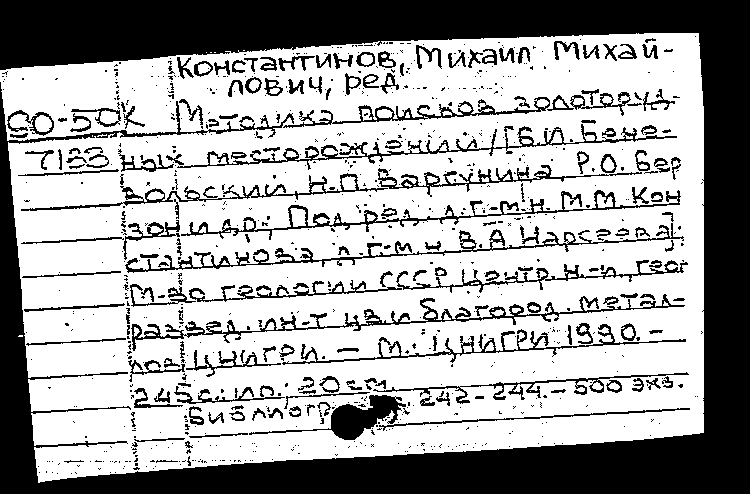 Константинов, Михаил Михай-
лович, ред.
90-50К Методика поисков золоторуд-
7133 ных месторождений / [Б.И. Бене-
вольский, Н.П. Варгунина, Р.О. Бер
зон и др.; Под ред. д.г.-м.н. М.М. Кон
стантинова, д.г.-м.н. В.А. Нарсеева];
М-во геологии СССР, Центр. н.-и. геол
развед. ин-т цв. и благород. метал-
лов ЦНИГРИ. — М.: ЦНИГРИ, 1990. -
245 с.: ил.; 20 см.
Библиогр 242-244. - 500 экз.